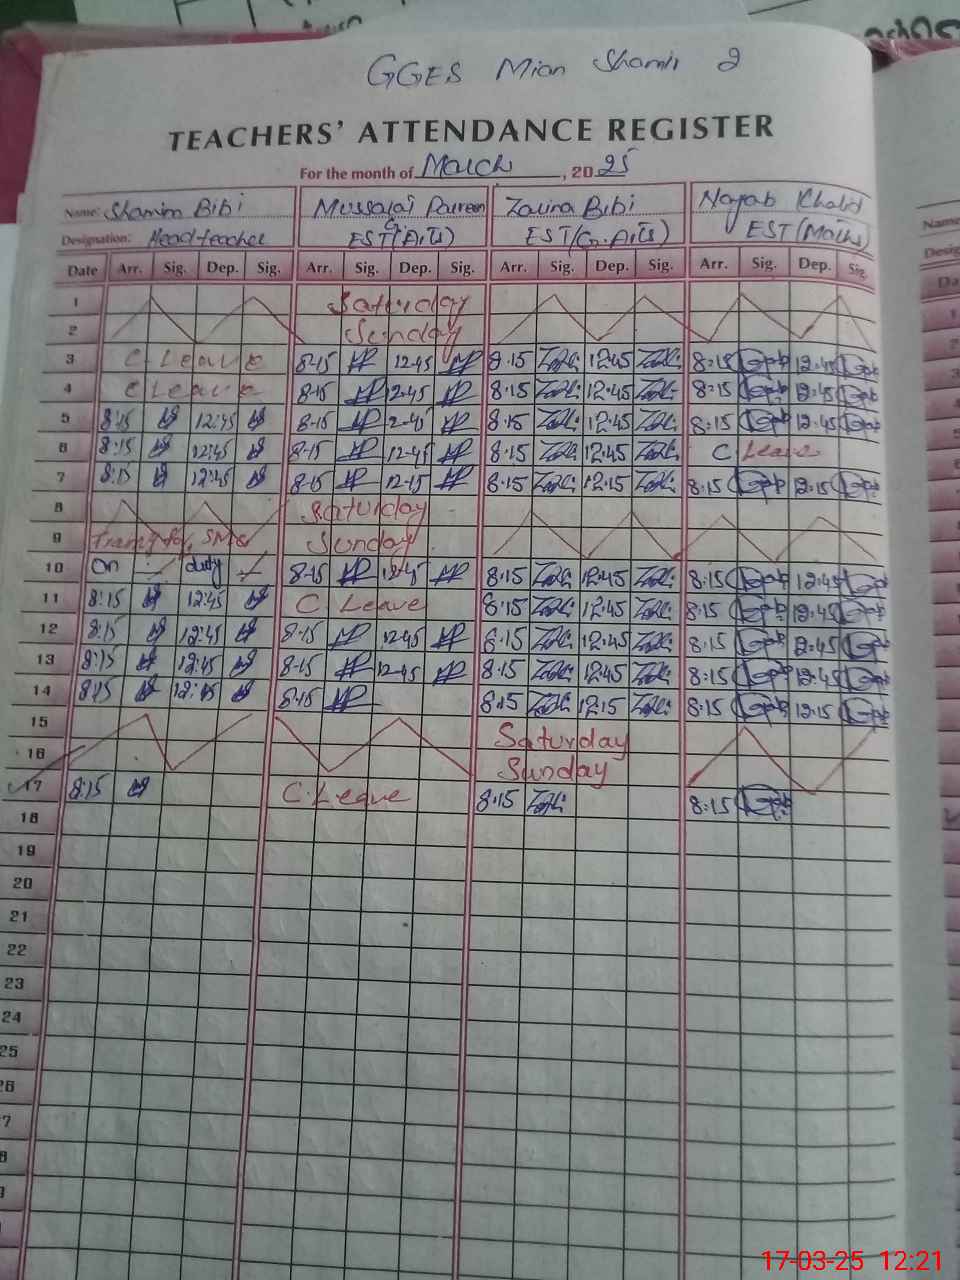 GGES Mian Shamir 2
TEACHERS' ATTENDANCE REGISTER
For the month of March, 2025
Name: Shamim Bibi Mussarat Parveen Zaura Bibi Nayab Khalid
Designation: Head teacher EST(Arts) EST(G.Arts) EST(Maths)
Date Arr. Sig. Dep. Sig. Arr. Sig. Dep. Sig. Arr. Sig. Dep. Sig. Arr. Sig. Dep. Sig.
1 Saturday
2 Sunday
3 C. Leave 8-15 12-45 8:15 12:45 8:15 12:45
4 C Leave 8-15 12-45 8:15 12:45 8:15 12:45
5 8:15 12:45 8-15 2-45 8:15 12:45 8:15 12:45
6 8:15 12:45 8-15 12-45 8:15 12:45 C. Leave
7 8:15 12:45 8-15 12-15 8:15 12:15 8:15 12:15
8 Saturday
9 Sunday
10 on duty 8-15 12-45 8:15 12:45 8:15 12:45
11 8:15 12:45 C. Leave 8:15 12:45 8:15 12:45
12 8:15 12:45 8-15 12-45 8:15 12:45 8:15 12:45
13 8:15 12:45 8-15 12-45 8:15 12:45 8:15 12:45
14 8:15 8-15 8:15 12:15 8:15 12:15
15 Saturday
16 Sunday
17 8:15 C. Leave 8:15 8:15
18
19
20
21
22
23
24
25
26
17-03-25 12:21